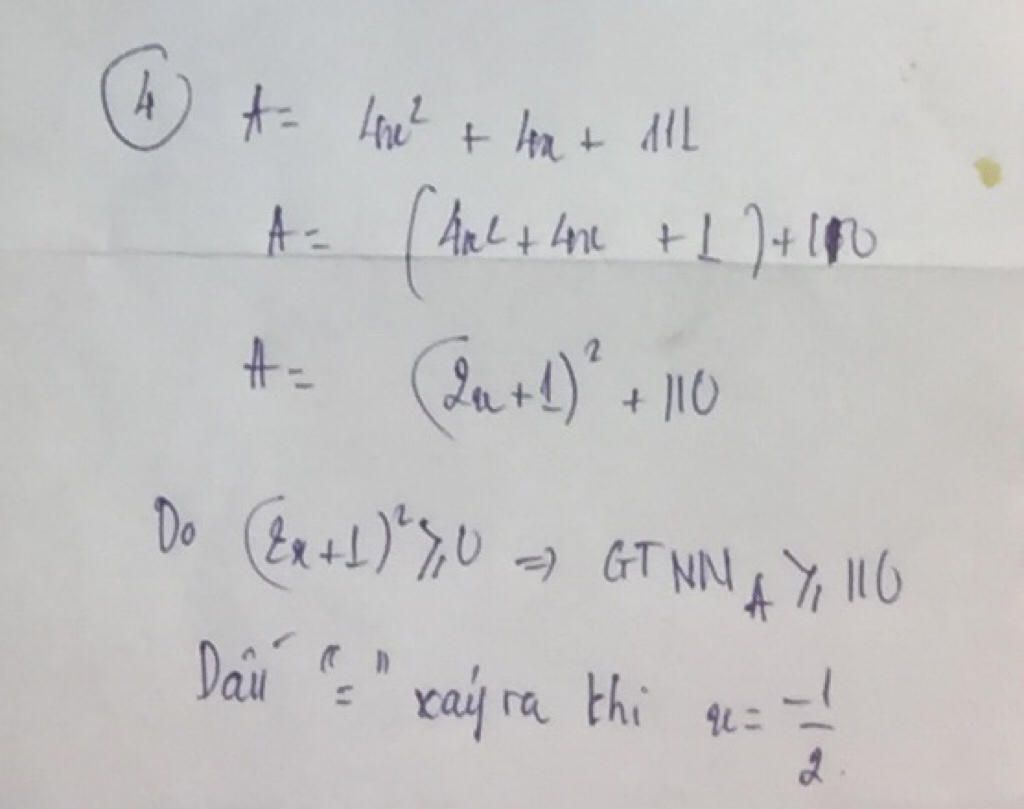 ④ A = 4x² + 4x + 111
A = (4x² + 4x + 1) + 110
A = (2x + 1)² + 110
Do (2x + 1)² ⩾ 0 ⇒ GTNN_A ⩾ 110
Dấu "=" xảy ra thi x = -1/2.